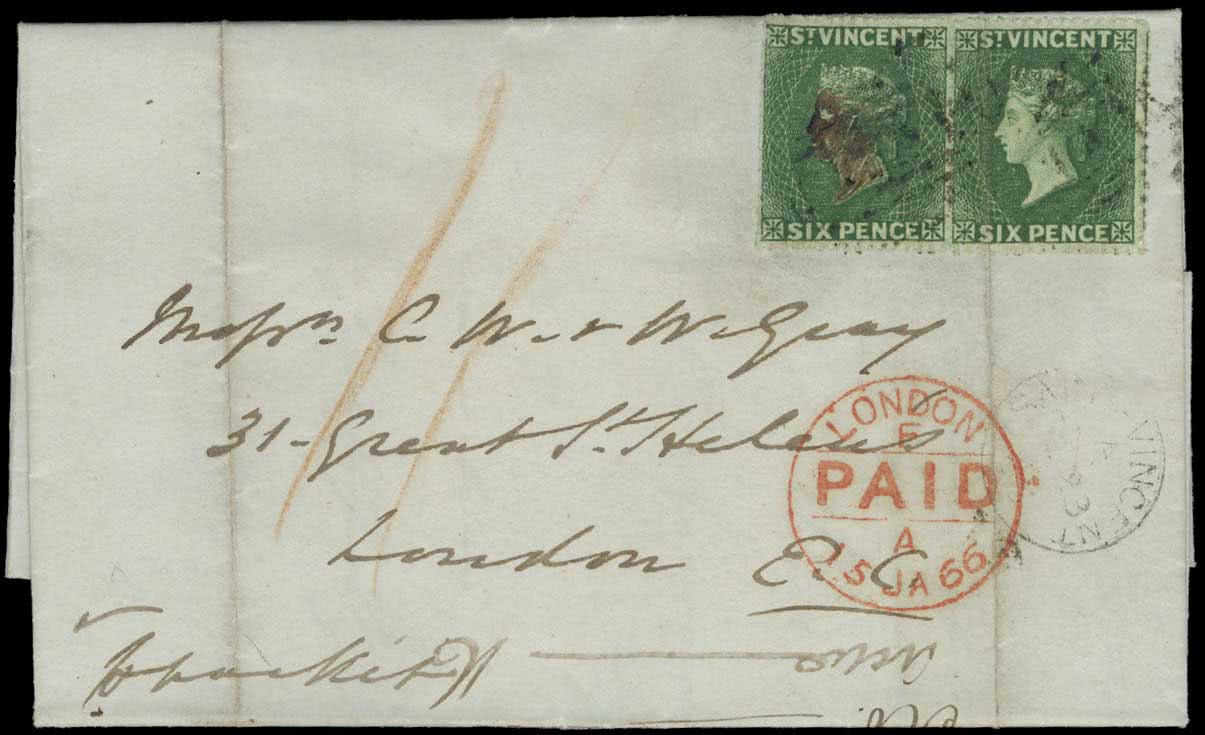 ST VINCENT ST VINCENT
SIX PENCE SIX PENCE
Messrs C. W. & W. Gray
31 - Great St. Helens
London E. C.
LONDON
F
PAID
A
15 JA 66
VINCENT
23
packet